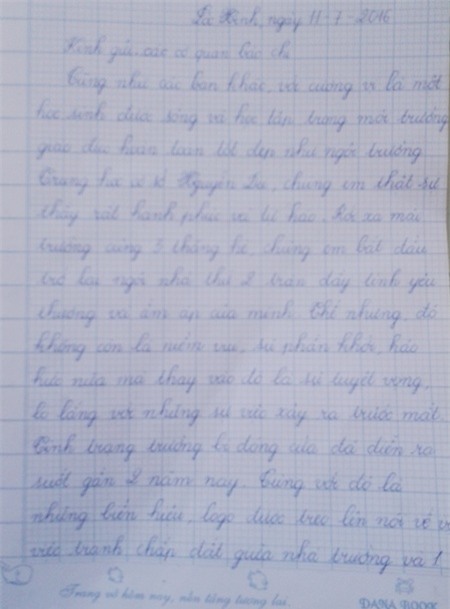 Lộc Ninh, ngày 11-7-2016
Kính gửi các cơ quan báo chí
Cũng như các bạn khác, với cương vị là một
học sinh được sống và học tập trong môi trường
giáo dục hoàn toàn tốt đẹp như ngôi trường
Trung học cơ sở Nguyễn Du, chúng em thật sự
thấy rất hạnh phúc và tự hào. Rời xa mái
trường cùng 3 tháng hè, chúng em bắt đầu
trở lại ngôi nhà thứ 2 tràn đầy tình yêu
thương và ấm áp của mình. Thế nhưng, đó
không còn là niềm vui, sự phấn khởi, háo
hức nữa mà thay vào đó là sự tuyệt vọng,
lo lắng với những sự việc xảy ra trước mắt.
Tình trạng trường bị đóng cửa đã diễn ra
suốt gần 2 năm nay. Cùng với đó là
những biển hiệu, logo được treo lên nói về v
việc tranh chấp đất giữa nhà trường và 1
Trang vở hôm nay, nền tảng tương lai.
DANA BOOK